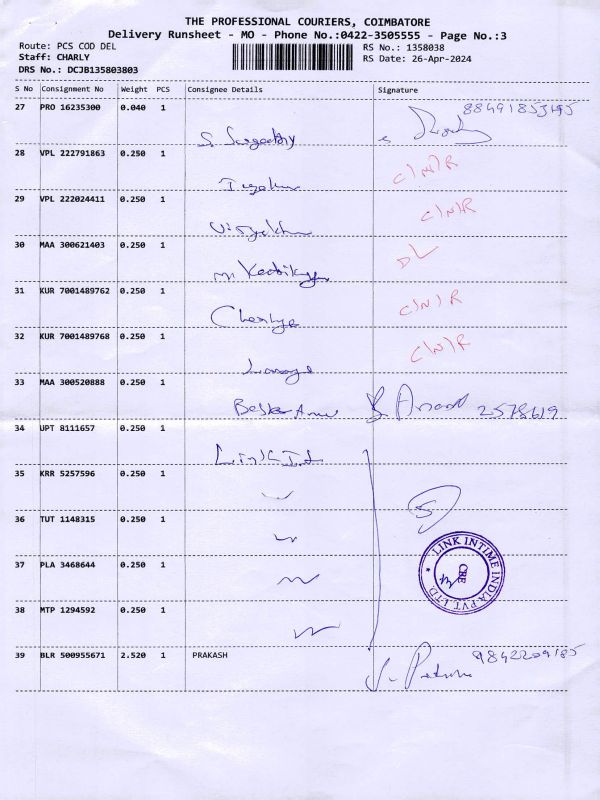 THE PROFESSIONAL COURIERS, COIMBATORE
Delivery Runsheet - MO - Phone No.:0422-3505555 - Page No.:3
Route: PCS COD DEL RS No.: 1358038
Staff: CHARLY RS Date: 26-Apr-2024
DRS No.: DCJB135803803
S No Consignment No Weight PCS Consignee Details Signature
27 PRO 16235300 0.040 1
28 VPL 222791863 0.250 1 C/N/R
29 VPL 222024411 0.250 1 C/N/R
30 MAA 300621403 0.250 1 DL
31 KUR 7001489762 0.250 1 C/N/R
32 KUR 7001489768 0.250 1 C/N/R
33 MAA 300520888 0.250 1 2578619
34 UPT 8111657 0.250 1
35 KRR 5257596 0.250 1
36 TUT 1148315 0.250 1
37 PLA 3468644 0.250 1
LINK INTIME INDIA PVT. LTD.
CBE
38 MTP 1294592 0.250 1
39 BLR 500955671 2.520 1 PRAKASH